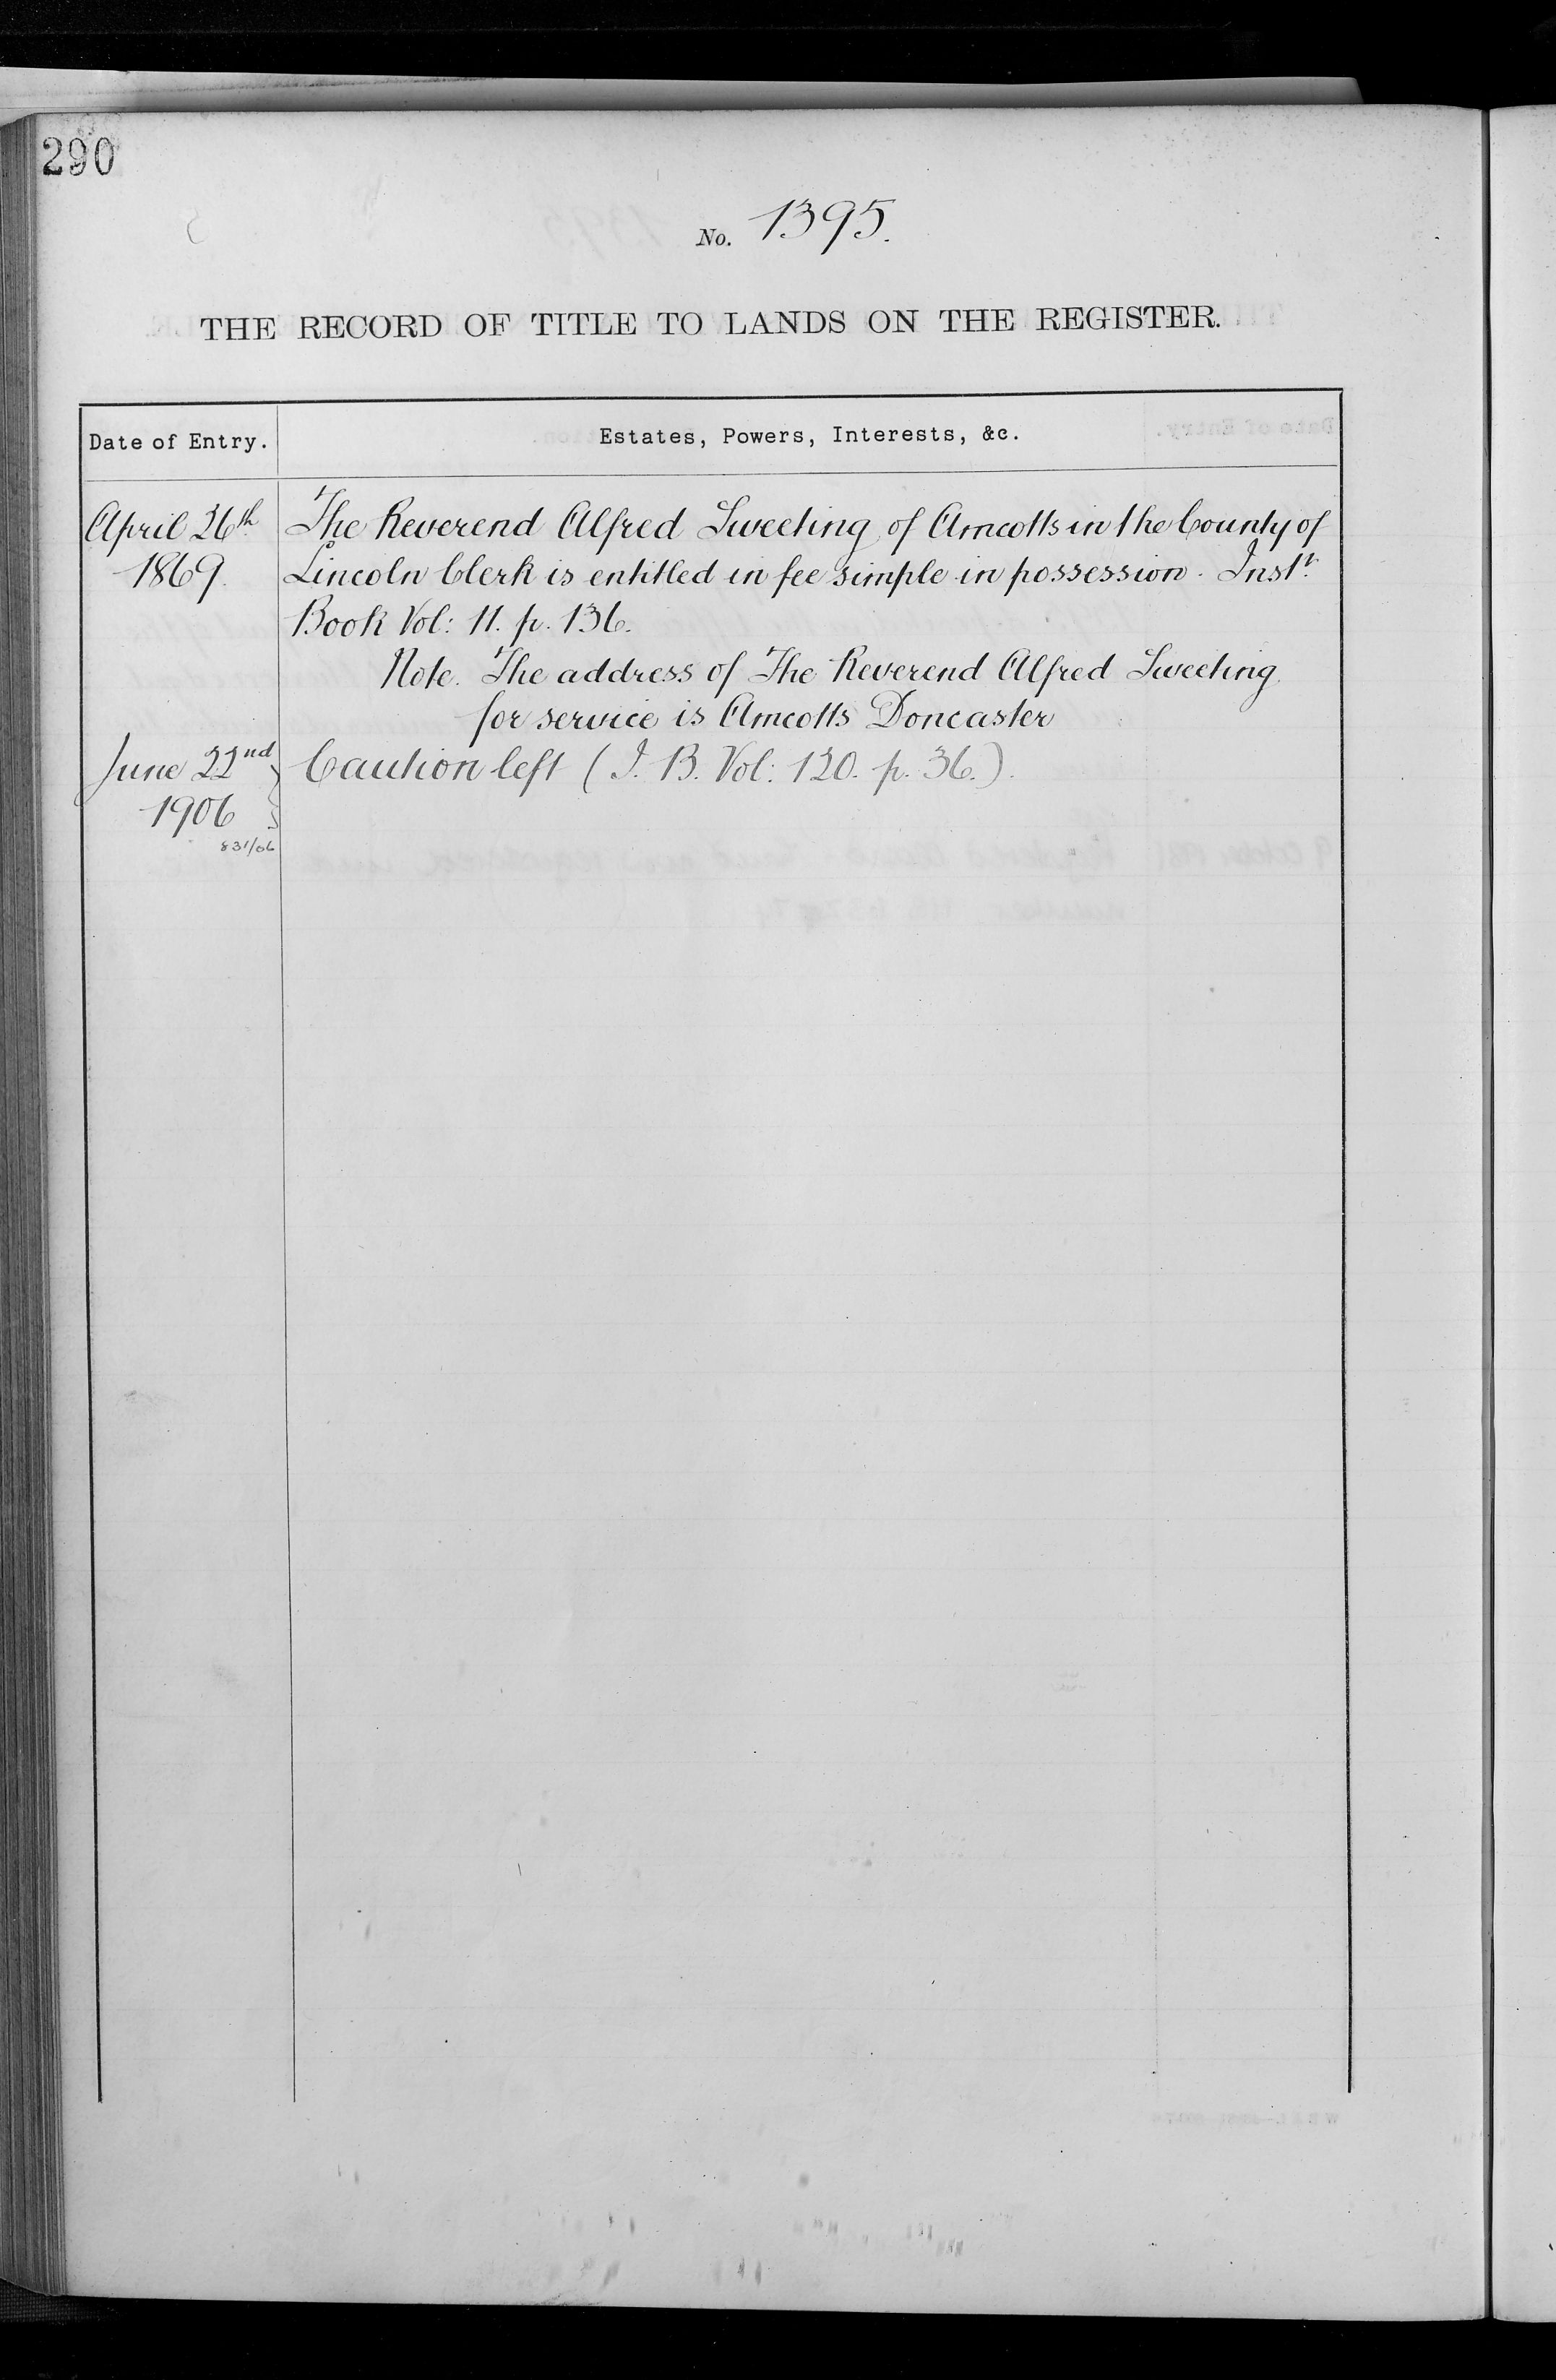 290
No. 1395.
THE RECORD OF TITLE TO LANDS ON THE REGISTER.
Date of Entry. Estates, Powers, Interests, &c.
April 26th The Reverend Alfred Sweeting of Amcotts in the County of
1869. Lincoln Clerk is entitled in fee simple in possession. Instt.
Book Vol: 11. p. 136.
Note. The address of The Reverend Alfred Sweeting
for service is Amcotts Doncaster
June 22nd Caution left (I. B. Vol: 120. p. 36.).
1906
831/06